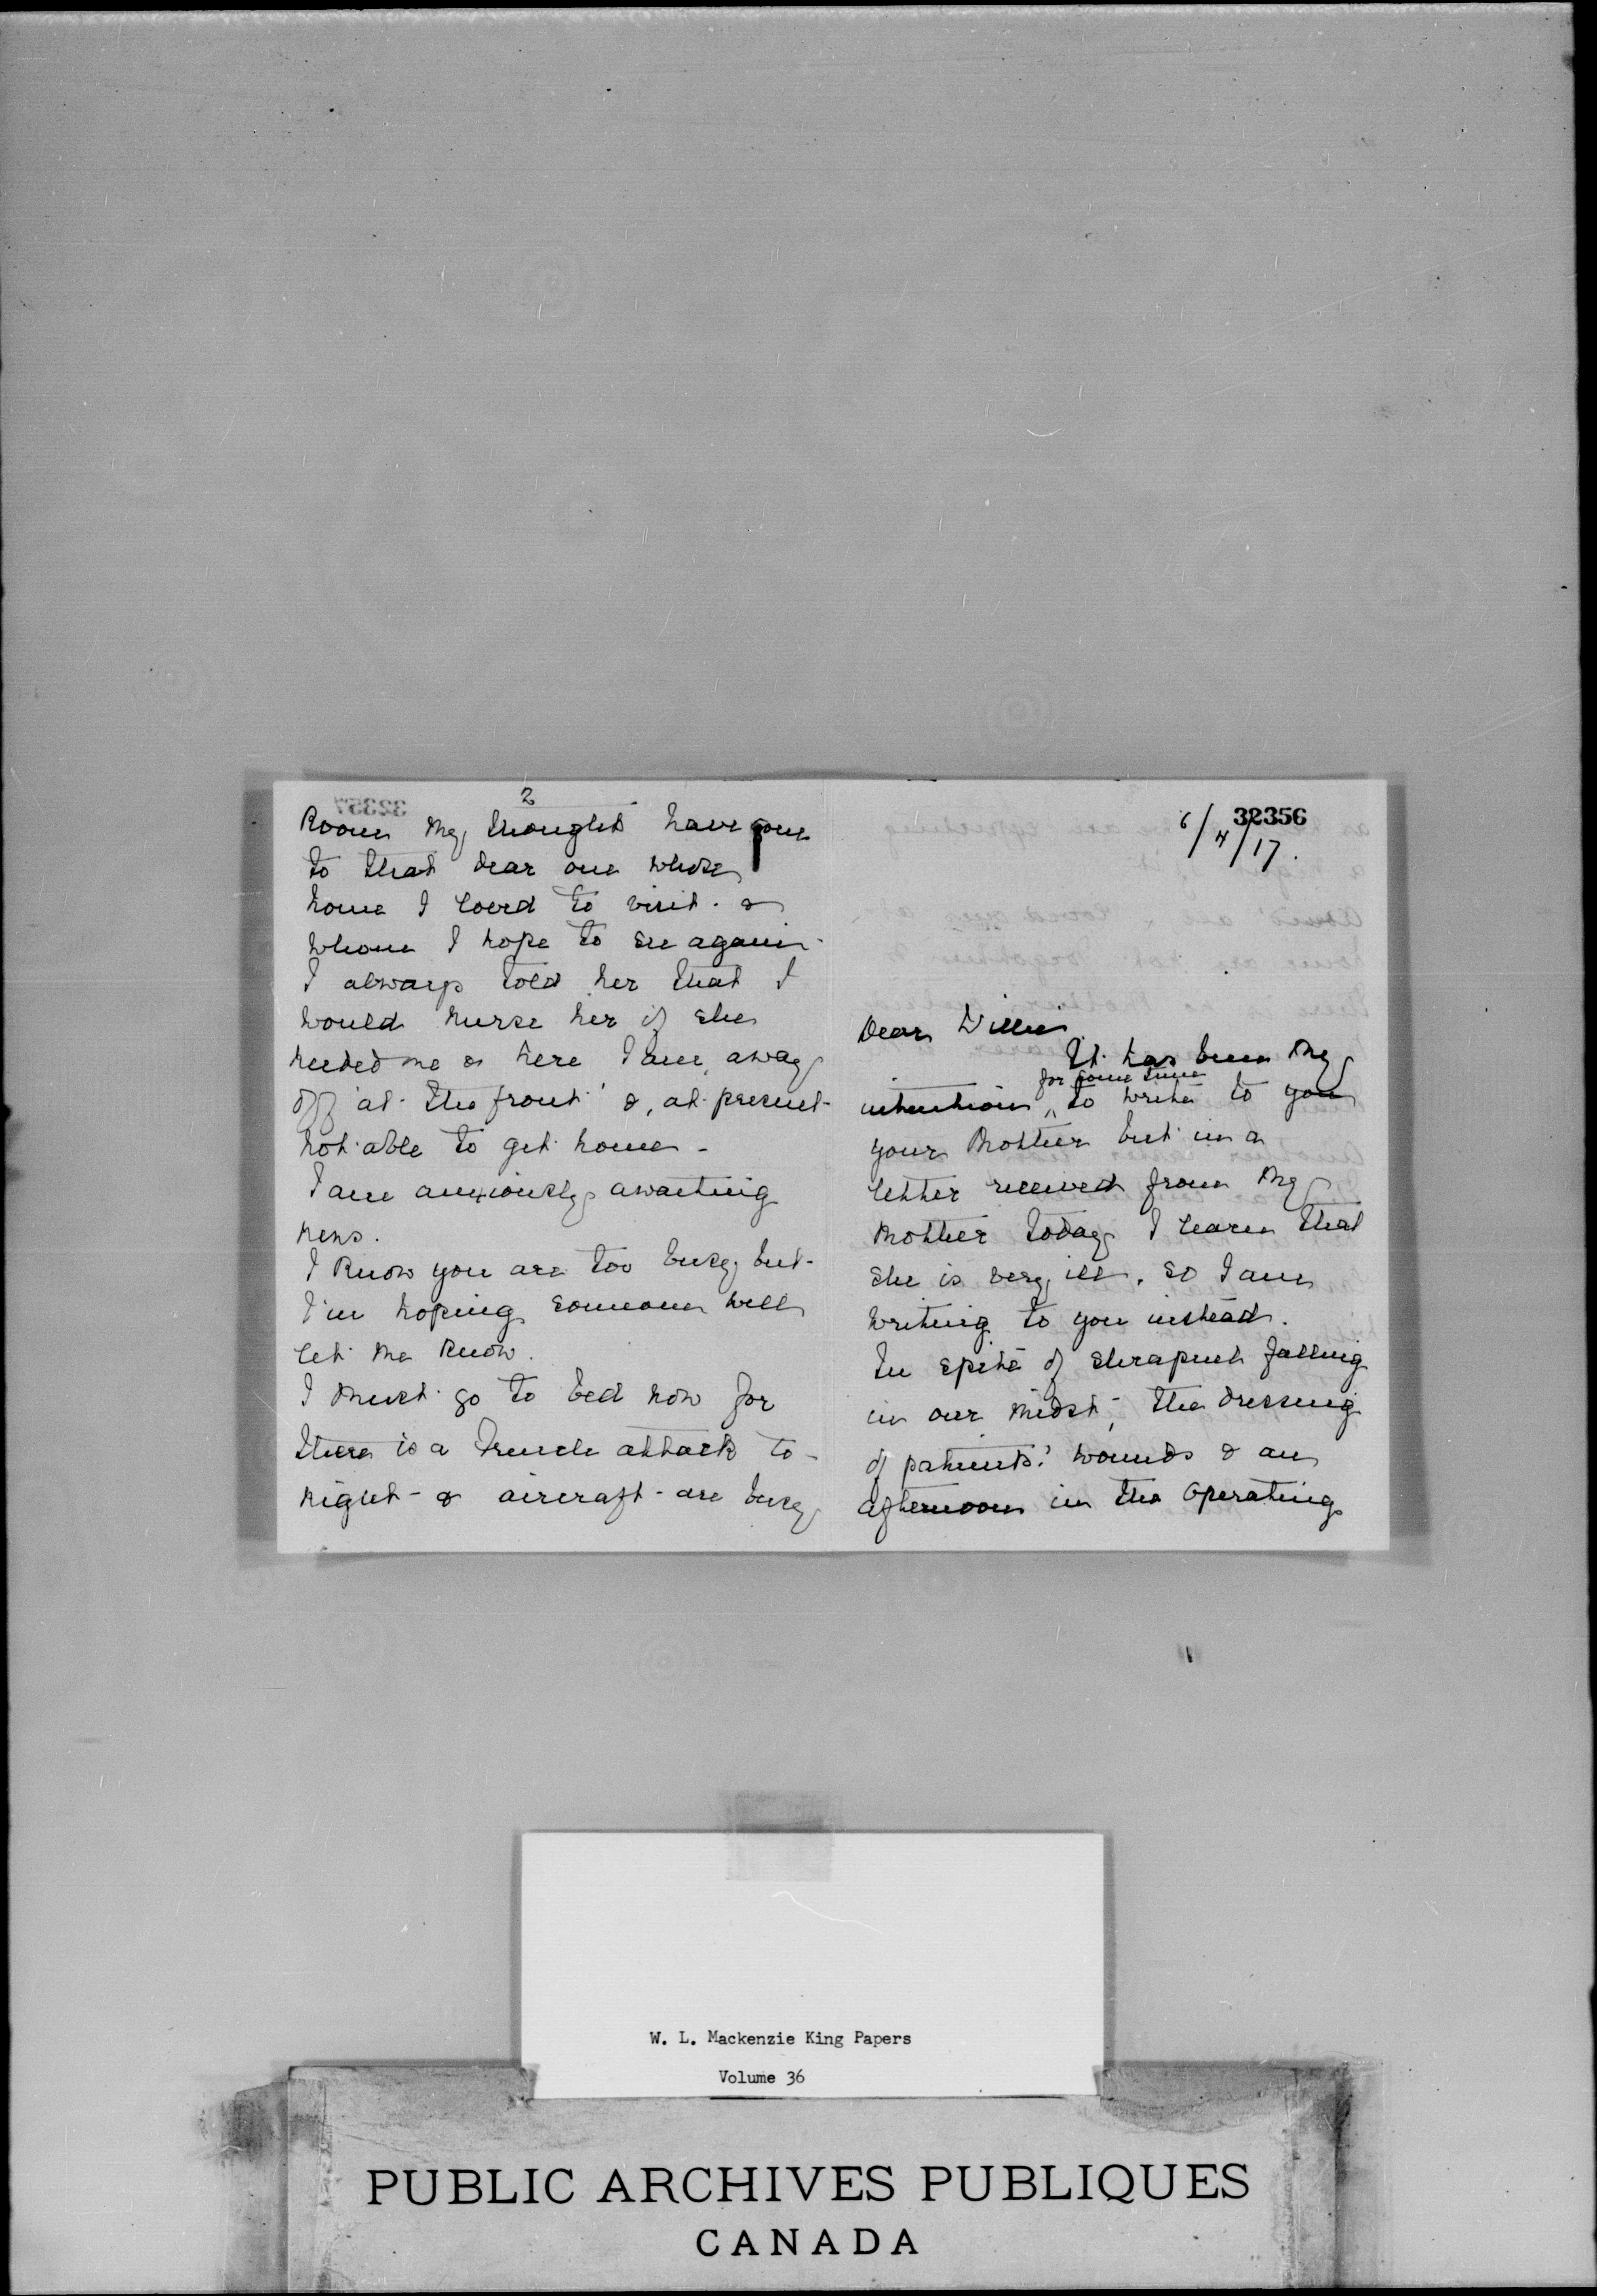 32356
6/4/17.
Dear Willie
It has been my
for some time
intention, to write to you
your Mother but in a
letter received from my
Mother today I learn that
she is very ill. So I am
writing to you instead.
In spite of shrapnel falling
in our midst, the dressing
of patients' wounds & an
afternoon in the Operating
2
Room my thoughts have gone
to that dear one whose
home I loved to visit. &
whom I hope to see again.
I always told her that I
would nurse her if she
needed me & here I am, away
off 'at the front' &, at present
not able to get home.
I am anxiously awaiting
news.
I know you are too busy but
I'm hoping someone will
let me know.
I must go to bed now for
there is a French attack to-
night - & aircraft are busy
W. L. Mackenzie King Papers
Volume 36
PUBLIC ARCHIVES PUBLIQUES
CANADA